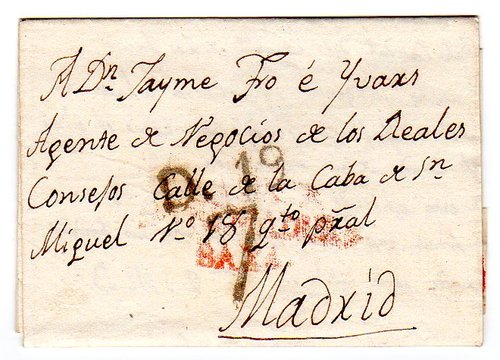 A Dn. Jayme Fro é Yvars
Agente de Negocios de los Reales
Consejos Calle de la Caba de Sn
Miguel No. 18 qto. pral
Madrid
D. 19
7
BAXA